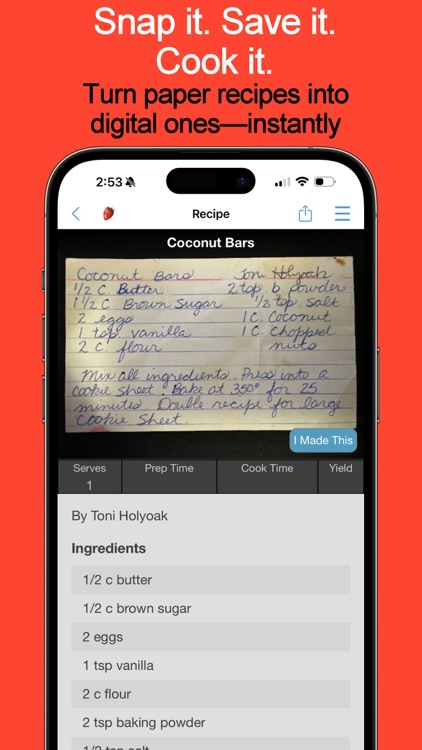 Snap it. Save it.
Cook it.
Turn paper recipes into
digital ones—instantly
2:53
Recipe
Coconut Bars
Coconut Bars Toni Holyoak
1/2 C. Butter 2 tsp b. powder
1 1/2 C. Brown Sugar 1/2 tsp. salt
2 eggs 1 C. Coconut
1 tsp vanilla 1 C. chopped
2 C. flour nuts
Mix all ingredients. Press into a
cookie sheet. Bake at 350° for 25
minutes Double recipe for large
cookie sheet.
I Made This
Serves Prep Time Cook Time Yield
1
By Toni Holyoak
Ingredients
1/2 c butter
1/2 c brown sugar
2 eggs
1 tsp vanilla
2 c flour
2 tsp baking powder
1/2 tsp salt